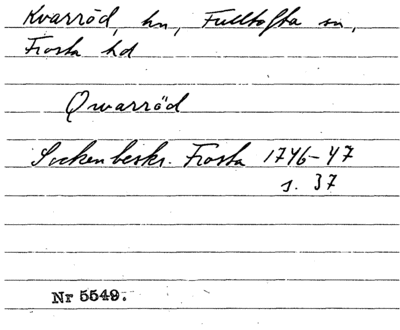 Kvarröd, hn, Fulltofta sn,
Frosta hd
Qwarröd
Sockenbeskr. Frosta 1746-47
s. 37
Nr 5549.